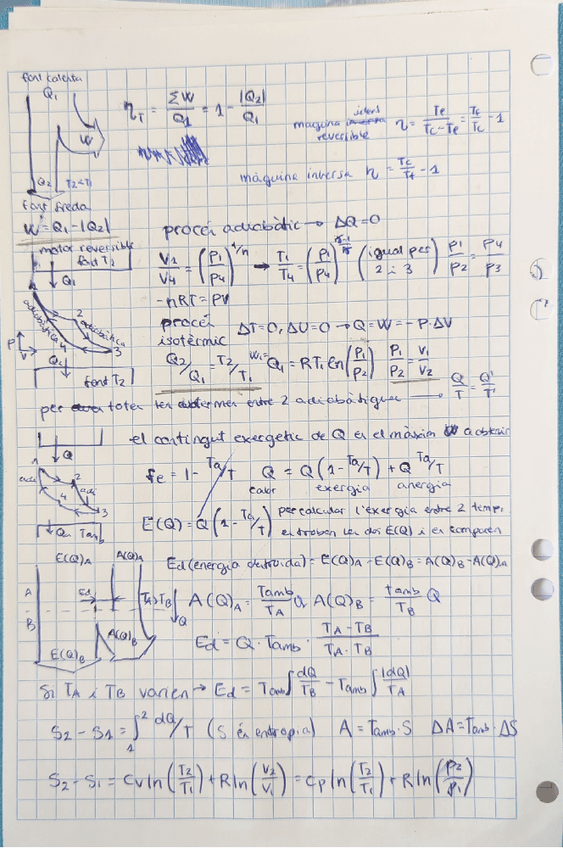 font calenta
Q₁
W
Q₂ T₂<T₁
font freda
η_T = ΣW/Q₁ = 1 - |Q₂|/Q₁
maquina reversible η = Te/(Tc-Te) = Tc/Tc - 1
màquina inversa η = Tc/Tf - 1
W = Q₁-|Q₂|
motor reversible
font T₁
Q₁
adiabàtica
2
adiabàtica
4
3
P
V
Q₂
font T₂
procés adiabàtic → ΔQ=0
V₂/V₄ = (P₁/P₄)^(1/n) → T₁/T₄ = (P₁/P₄) (igual per 2 i 3) P₁/P₂ = P₄/P₃
-nRT = PV
procés isotèrmic ΔT=0, ΔU=0 → Q=W=-P·ΔV
Q₂/Q₁ = T₂/T₁ W₁=Q₁ = RT₁ ln(P₁/P₂) P₁/P₂ = V₁/V₂
per totes les entre 2 adiabàtiques → Q/T = Q'/T'
el contingut exergètic de Q és el màxim W a obtenir
Q
1
adi
2
adi
4
3
Q₀ Tamb
fe = 1 - Ta/T Q = Q(1-Ta/T) + Q Ta/T
calor exergia anergia
E(Q) = Q(1-Ta/T) per calcular l'exergia entre 2 temp.
es troben les dos E(Q) i es comparen
E(Q)A A(Q)A
Ed (energia destruida) = E(Q)A - E(Q)B = A(Q)B - A(Q)A
A
B
Ed
TA>TB
Q
A(Q)B
E(Q)B
A(Q)A = Tamb/TA Q A(Q)B = Tamb/TB Q
Ed = Q·Tamb· (TA-TB)/(TA·TB)
Si TA i TB varien → Ed = Tamb∫dQ/TB - Tamb∫|dQ|/TA
S₂ - S₁ = ∫₁² dQ/T (S és entropia) A = Tamb·S ΔA = Tamb·ΔS
S₂ - S₁ = Cv ln(T₂/T₁) + R ln(V₂/V₁) = Cp ln(T₂/T₁) + R ln(P₂/P₁)